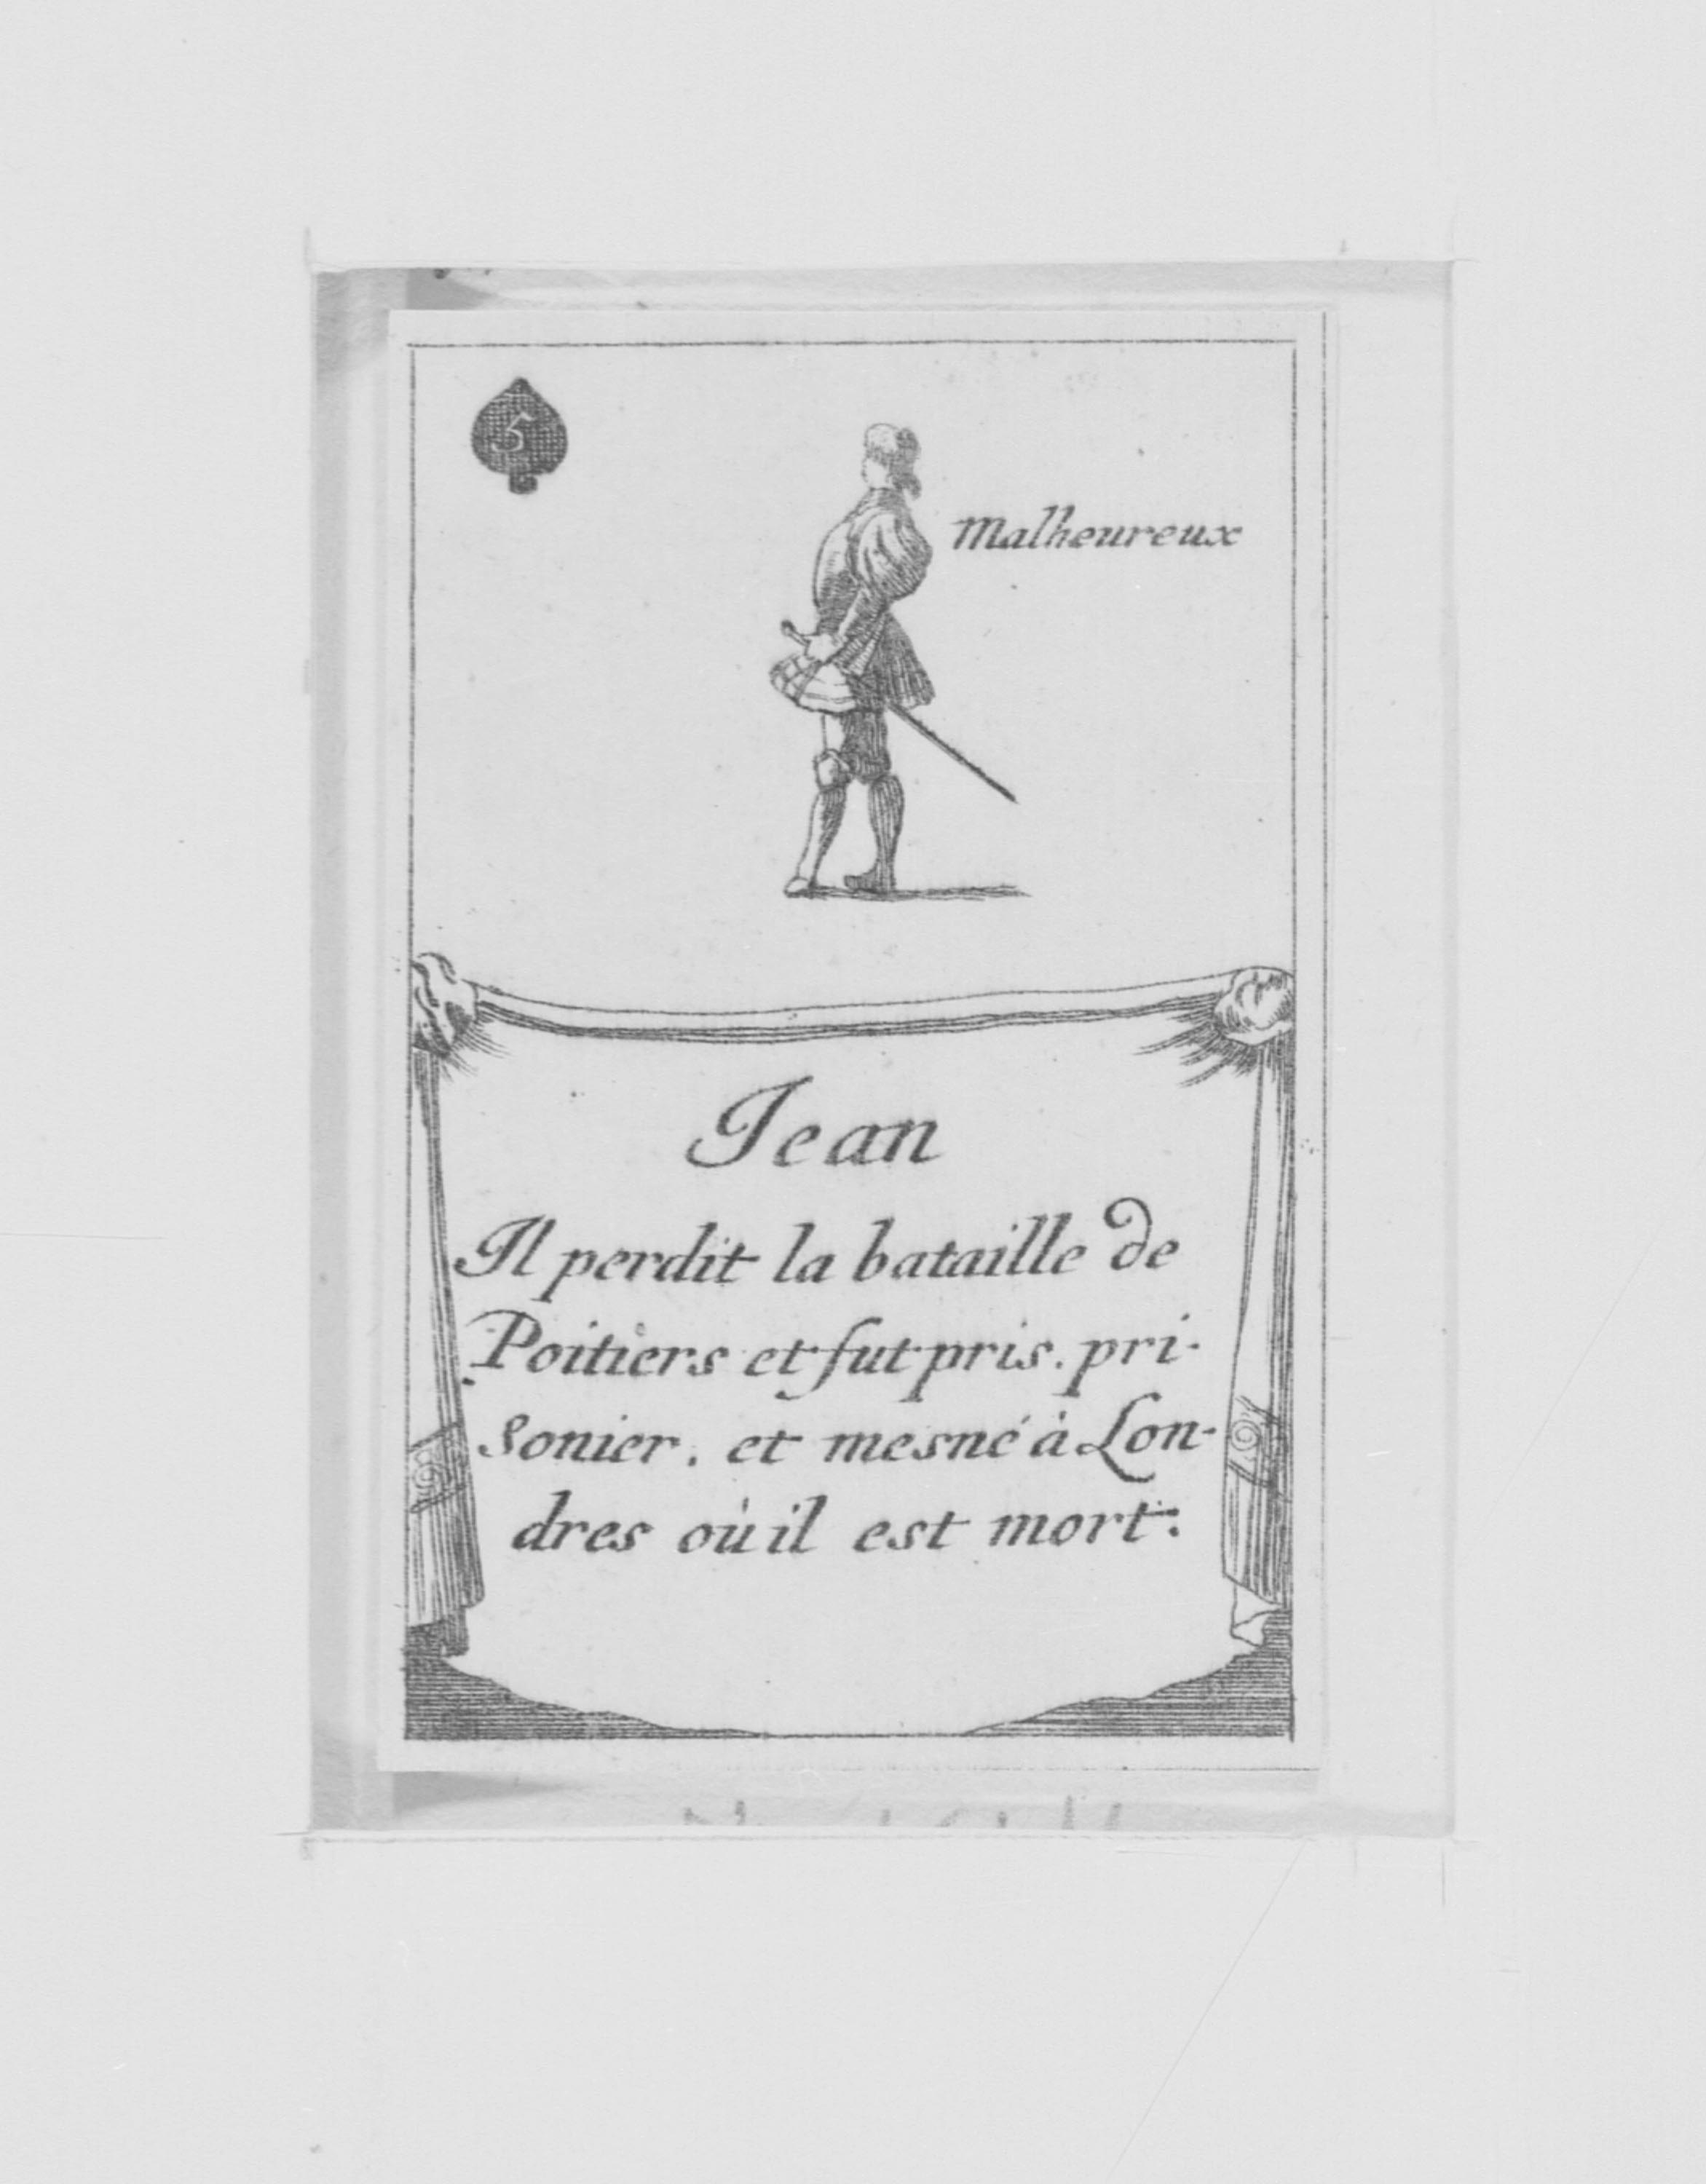 5
Malheureux
Jean
Il perdit la bataille de
Poitiers et fut pris. pri-
sonier. et mesné à Lon-
dres où il est mort.